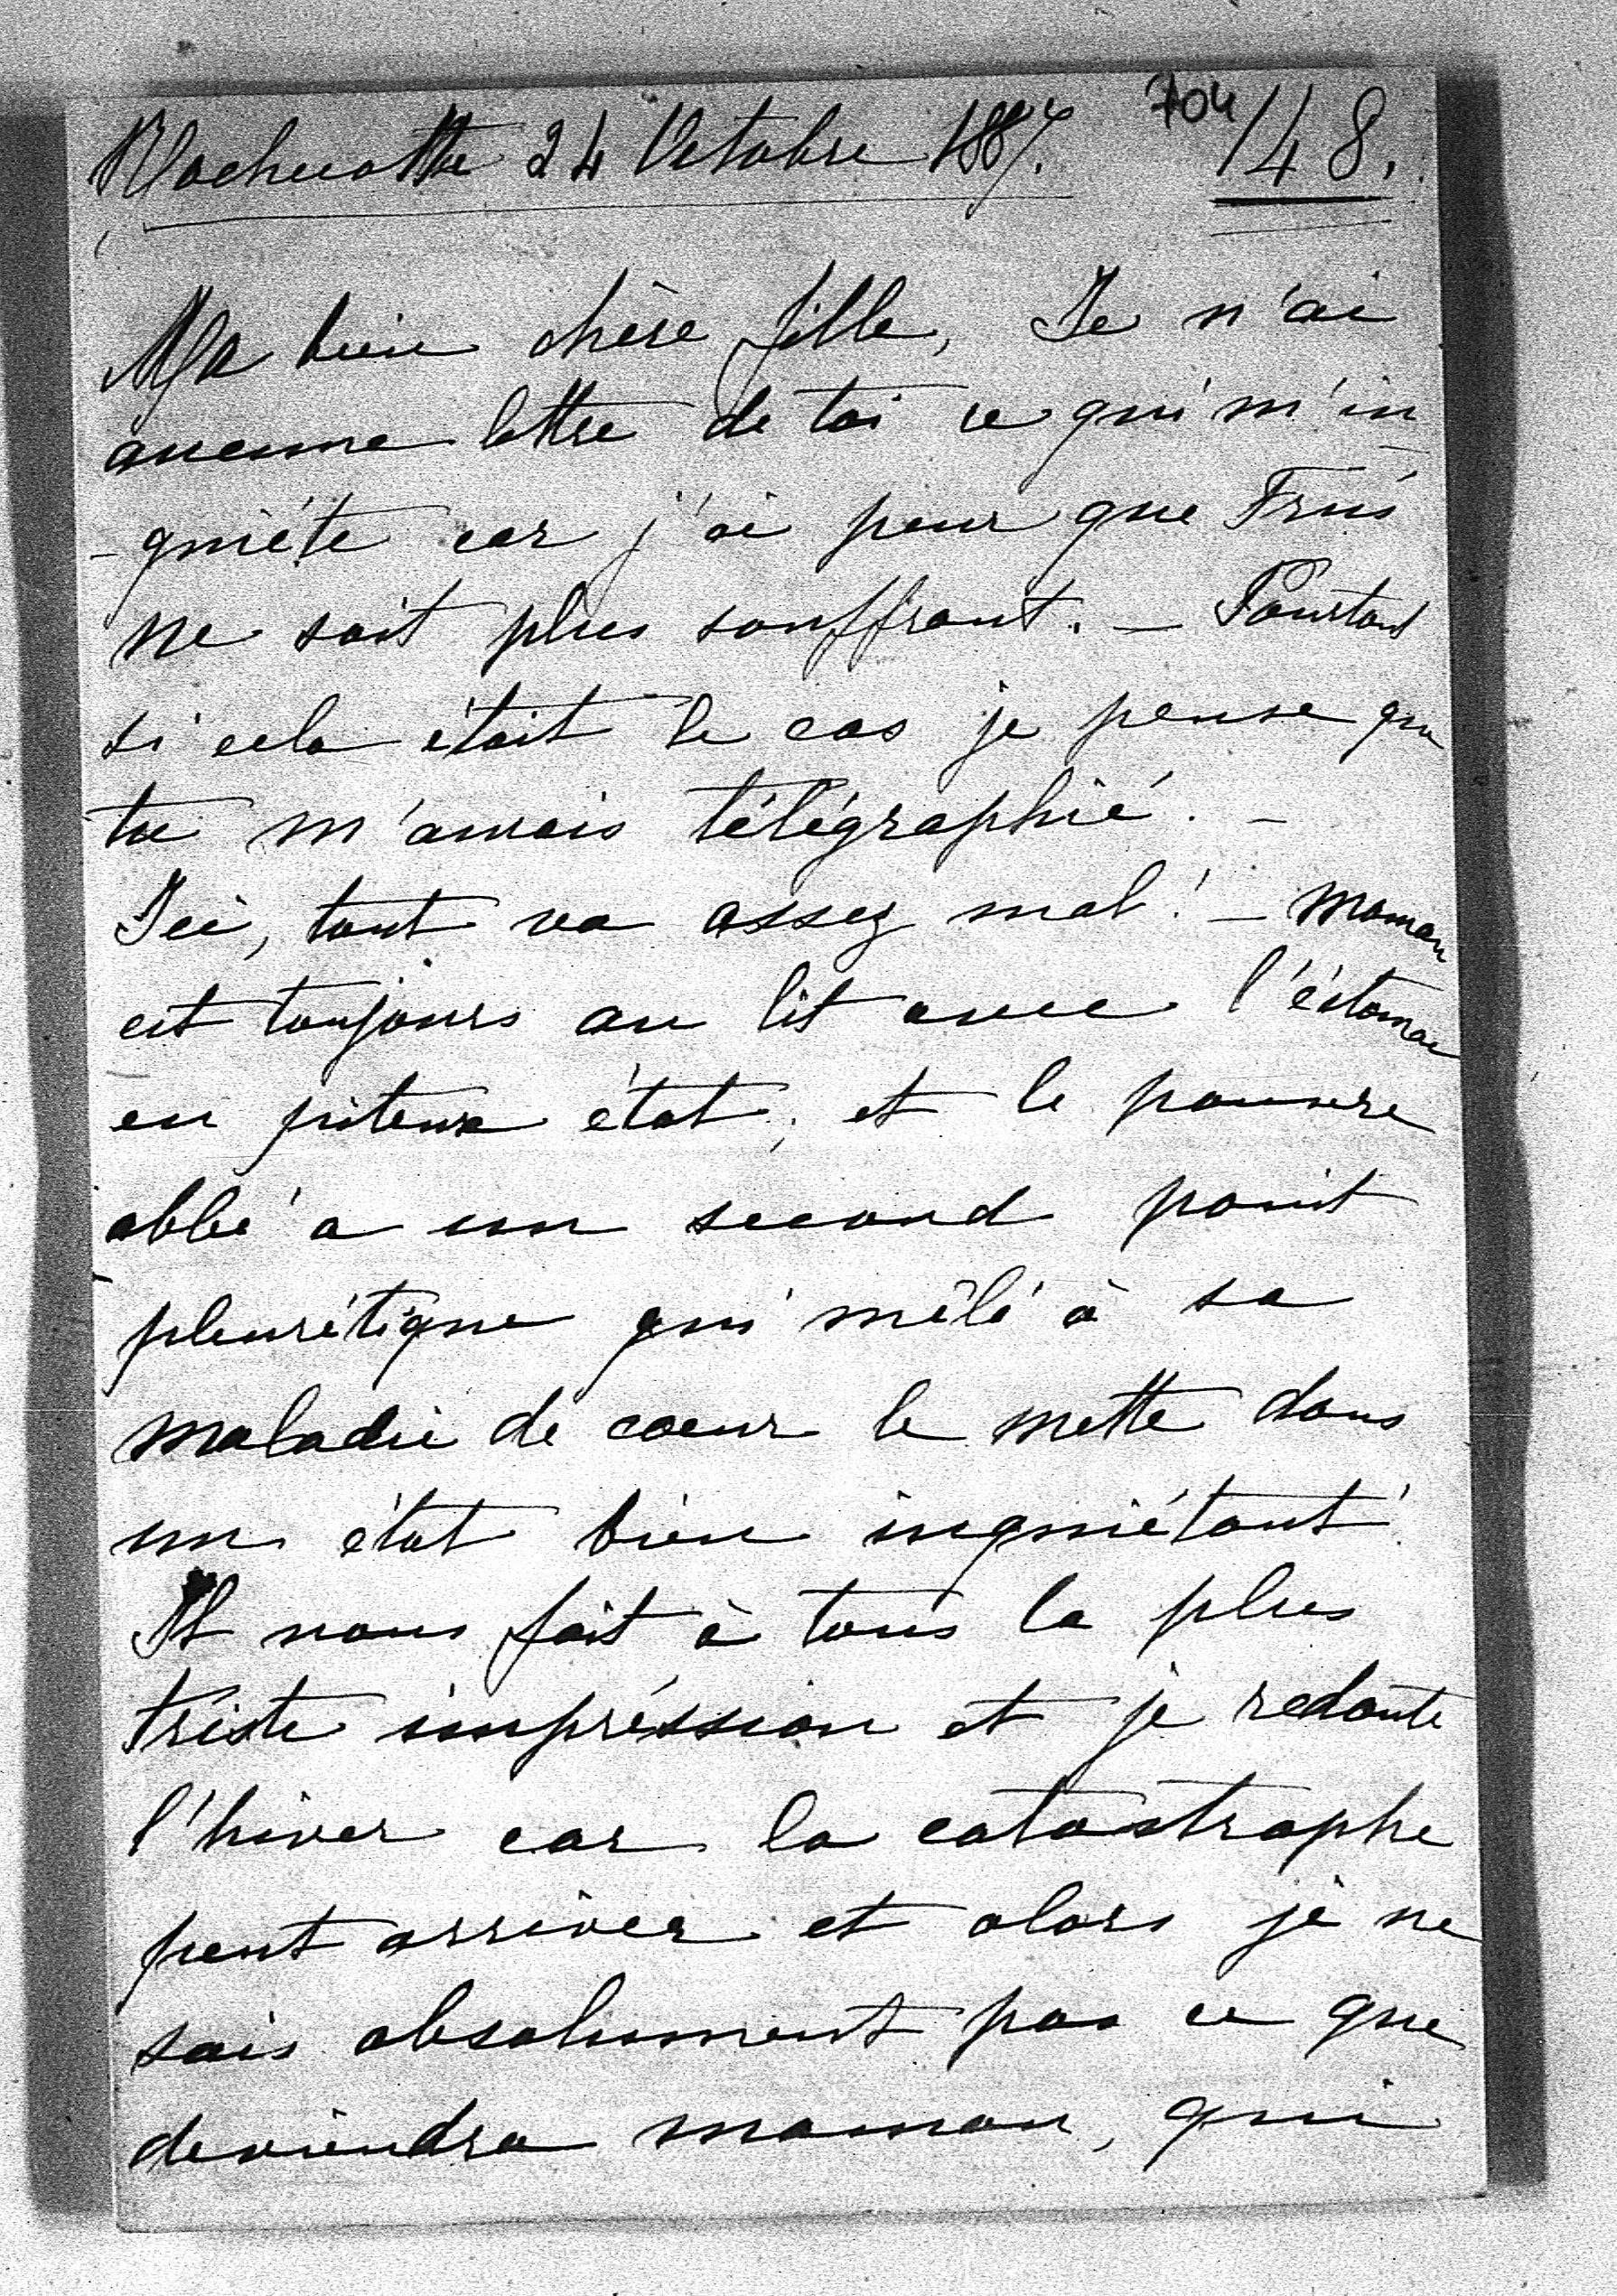 24 Octobre 1887. 704 148.
Ma bien chère fille, Je n'ai
aucune lettre de toi ce qui m'in
-quiéte car j'ai peur que Fris
ne soit plus souffrant. — Pourtant
si cela était le cas je pense que
tu m'aurais télégraphié. —
Ici, tout va assez mal! — Maman
est toujours au lit avec l'éstomac
en piteux état, et le pauvre
abbé a un second point
pleurétique qui mêlé à sa
maladie de coeur le mette dans
un état bien inquiétant!
Il nous fait à tous la plus
triste impréssion et je redoute
l'hiver car la catastrophe
peut arriver et alors je ne
sais absolument pas ce que
deviendra maman, qui